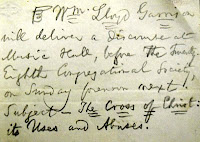 Wm. Lloyd Garrison
will deliver a Discourse at
Music Hall, before the Twenty
Eighth Congregational Society,
on Sunday forenoon next.
Subject — The Cross of Christ:
its Uses and Abuses.